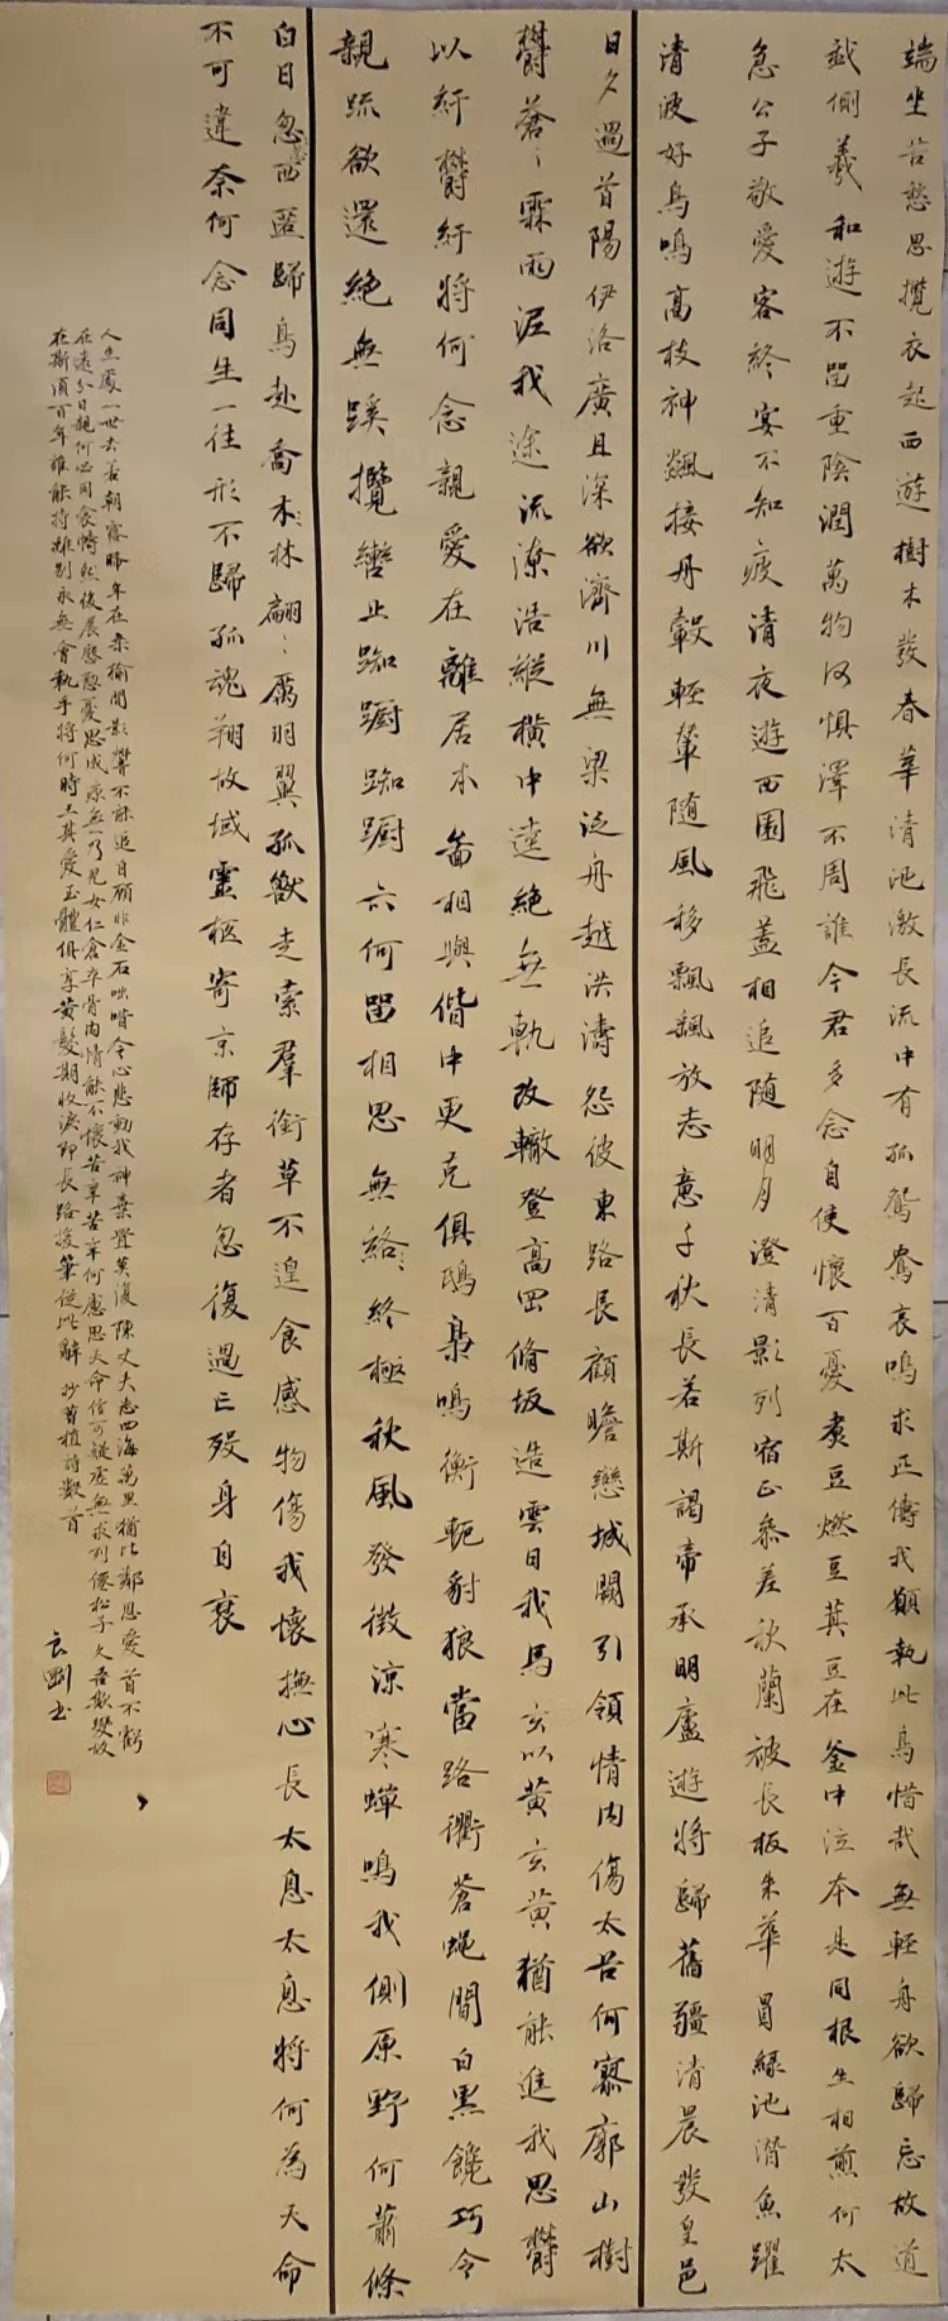 端坐苦愁思攬衣起西遊樹木發春華清池激長流中有孤鴛鴦哀鳴求匹儔我願執此鳥惜哉無輕舟欲歸忘故道
戢側羲和遊不留重陰潤萬物何懼澤不周誰令君多念自使懷百憂煮豆燃豆萁豆在釜中泣本是同根生相煎何太
急公子敬愛客終宴不知疲清夜遊西園飛蓋相追隨明月澄清影列宿正參差秋蘭被長坂朱華冒綠池潛魚躍
清波好鳥鳴高枝神飆接丹轂輕輦隨風移飄飆放志意千秋長若斯謁帝承明廬遊將歸舊疆清晨發皇邑
日夕過首陽伊洛廣且深欲濟川無梁泛舟越洪濤怨彼東路長顧瞻戀城闕引領情內傷太谷何寥廓山樹
鬱蒼々霖雨泥我途流潦浩縱橫中逵絕無軌改轍登高岡脩坂造雲日我馬玄以黃玄黃猶能進我思鬱
以紆鬱紆將何念親愛在離居本圖相與偕中更克俱鴟梟鳴衡軛豺狼當路衢蒼蠅間白黑饞巧令
親疏欲還絕無蹊攬轡止踟躕踟躕亦何留相思無絡終極秋風發微涼寒蟬鳴我側原野何蕭條
白日忽西匿歸鳥赴喬木林翩々厲羽翼孤獸走索羣銜草不遑食感物傷我懷撫心長太息太息將何為天命
不可違奈何念同生一往形不歸孤魂翔故域靈柩寄京師存者忽復過亡歿身自衰
人生處一世去若朝露晞年在桑榆間影響不能追自顧非金石咄唶令心悲動我神棄置莫復陳丈夫志四海萬里猶比鄰恩愛首不虧
在遠分日親何必同衾幬然後展慇懃憂思成疾無乃兒女仁倉卒骨肉情能不懷苦辛苦辛何慮思天命信可疑虛無求列僊松子久吾欺變故
在斯須百年誰能持離別永無會執手將何時王其愛玉體俱享黃髮期收淚即長路援筆從此辭 抄曹植詩數首
玄剛書